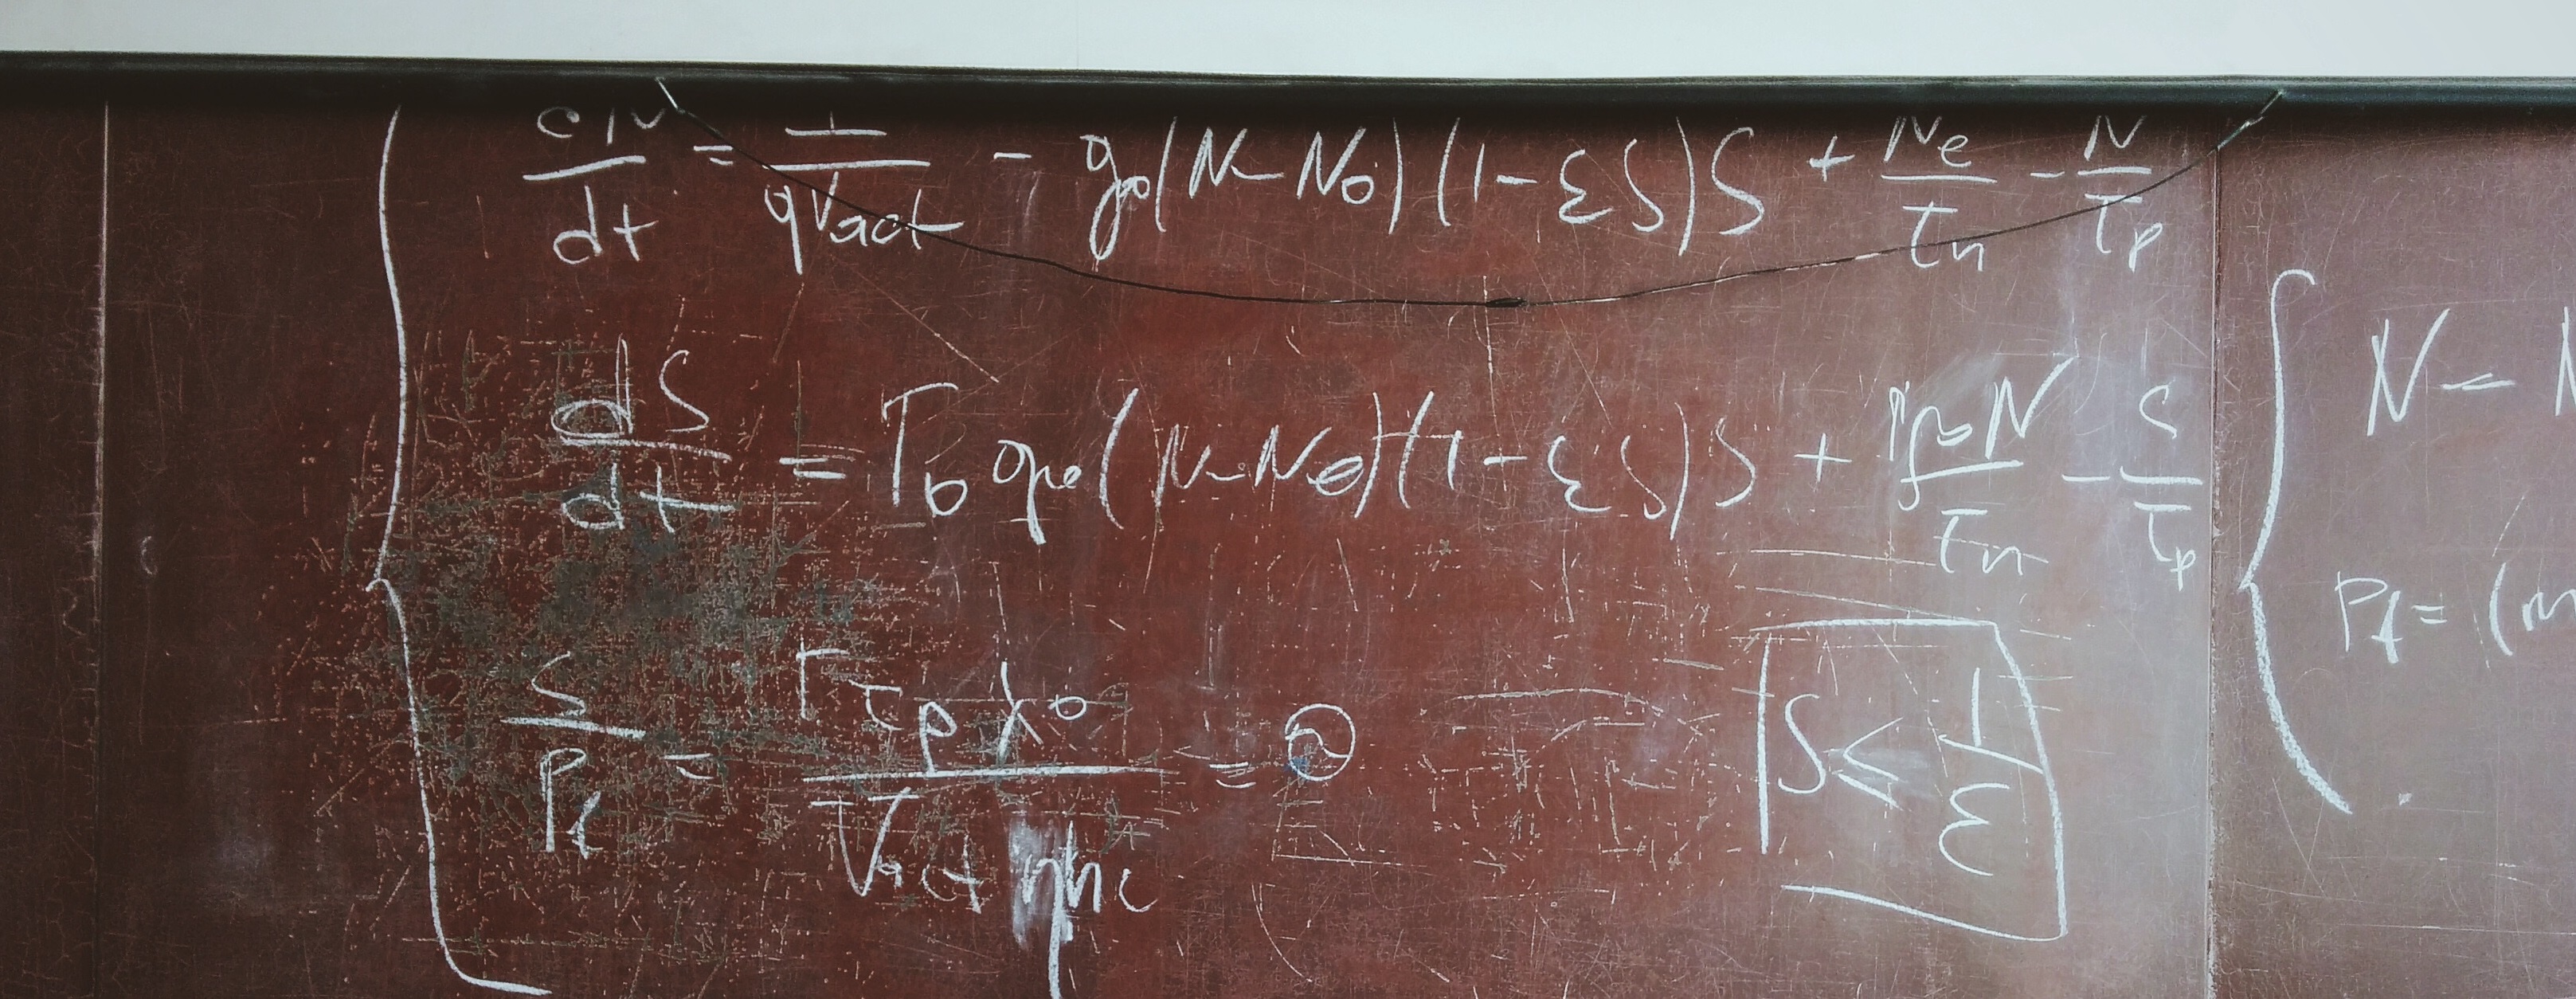 dN/dt = I/qVact - g0(N - N0)(1 - εS)S + Ne/τn - N/τp
dS/dt = Γ0 g0(N - N0)(1 - εS)S + N/τn - S/τp
S/Pf = Γτpλ0/Vact ηhc =
S ≤ 1/ε
N -
Pf = (m